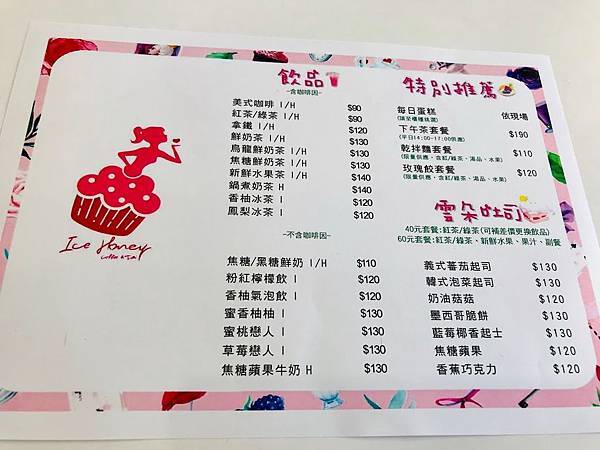 Ice Honey
飲品
-含咖啡因-
美式咖啡 I/H $90
紅茶/綠茶 I/H $90
拿鐵 I/H $120
鮮奶茶 I/H $130
烏龍鮮奶茶 I/H $130
焦糖鮮奶茶 I/H $130
新鮮水果茶 I/H $140
鍋煮奶茶 H $140
香柚冰茶 I $120
鳳梨冰茶 I $120
-不含咖啡因-
焦糖/黑糖鮮奶 I/H $110
粉紅檸檬飲 I $120
香柚氣泡飲 I $120
蜜香柚柚 I $130
蜜桃戀人 I $130
草莓戀人 I $130
焦糖蘋果牛奶 H $130
特別推薦
每日蛋糕 依現場
(請至櫃檯挑選)
下午茶套餐 $190
(平日14:00-17:00供應)
乾拌麵套餐 $110
(限量供應，含紅/綠茶、湯品、水果)
玫瑰餃套餐 $120
(限量供應，含紅/綠茶、湯品、水果)
雲朵吐司
40元套餐:紅茶/綠茶(可補差價更換飲品)
60元套餐:紅茶/綠茶、新鮮水果、果汁、副餐
義式蕃茄起司 $130
韓式泡菜起司 $130
奶油菇菇 $120
墨西哥脆餅 $130
藍莓椰香起士 $130
焦糖蘋果 $120
香蕉巧克力 $120